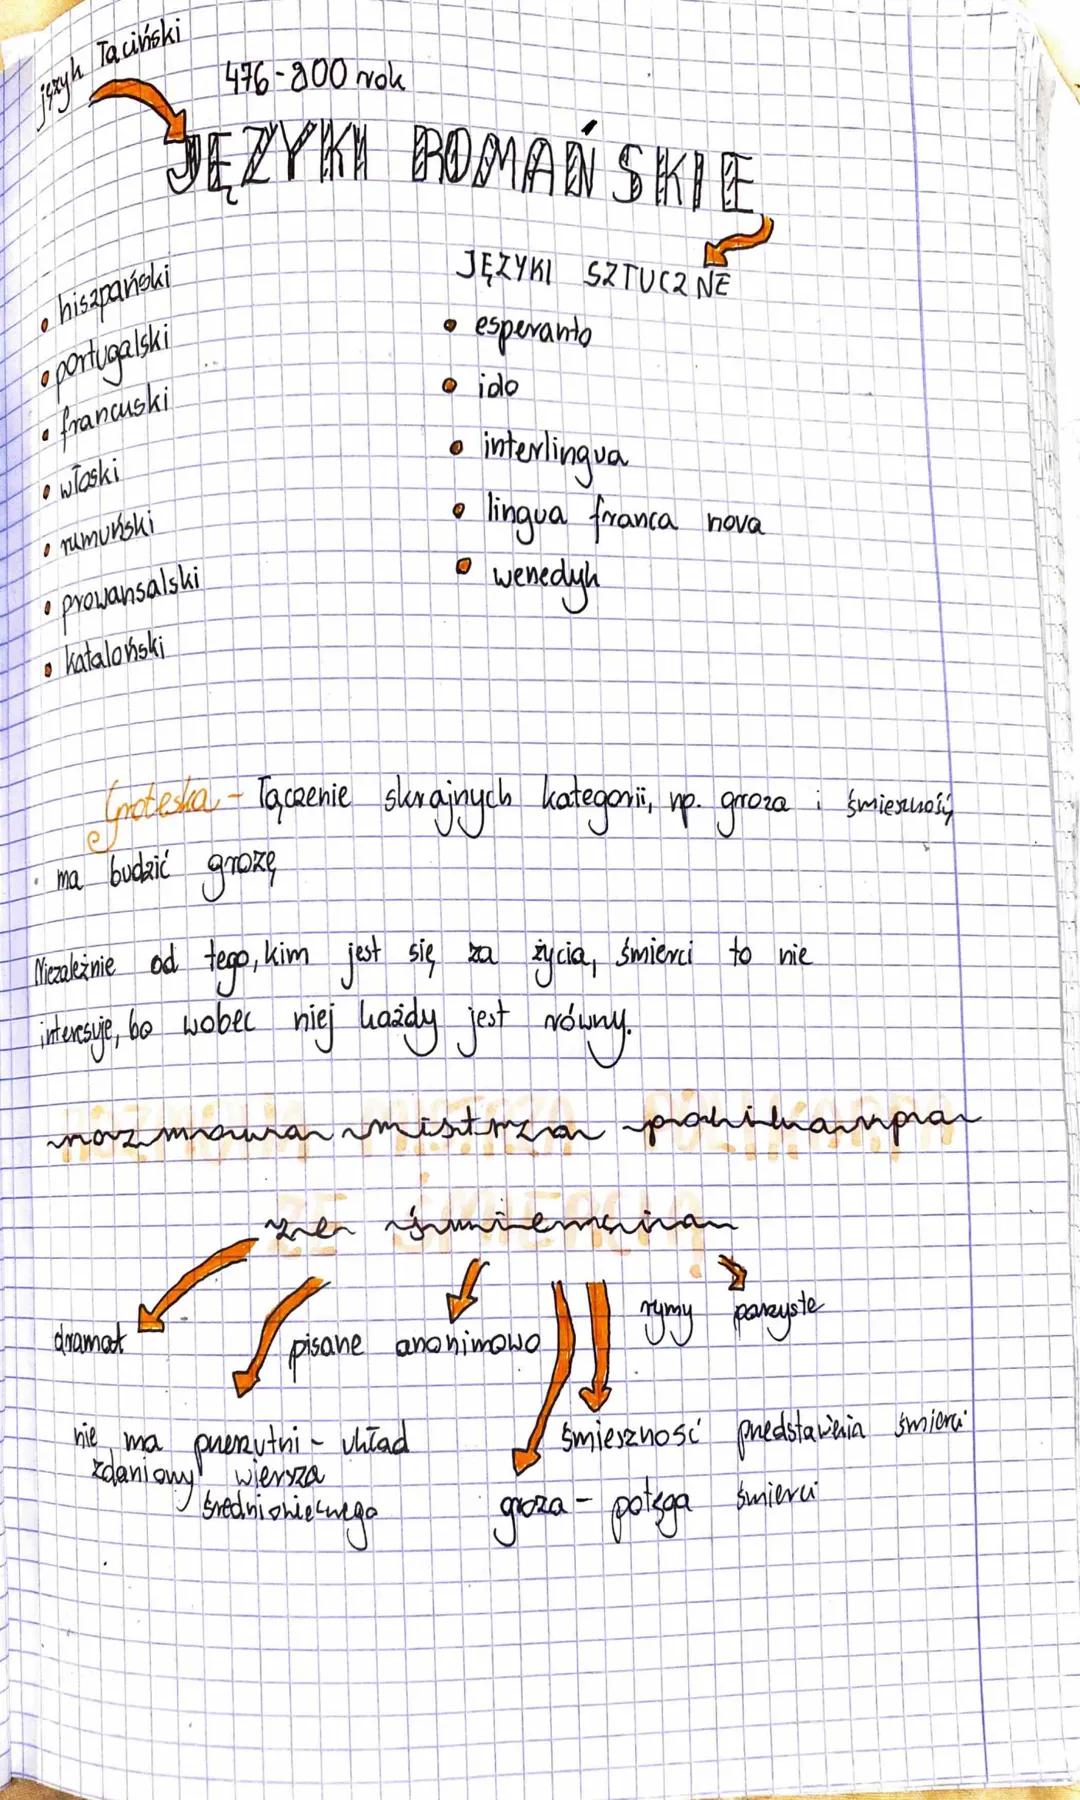 język łaciński
476-800 rok
JĘZYKI ROMAŃSKIE
• hiszpański
• portugalski
• francuski
• włoski
• rumuński
• prowansalski
• kataloński
JĘZYKI SZTUCZNE
• esperanto
• ido
• interlingua
• lingua franca nova
• wenedyk
Groteska - łączenie skrajnych kategorii, np. groza i śmieszność,
ma budzić grozę
Niezależnie od tego, kim jest się za życia, śmierci to nie
interesuje, bo wobec niej każdy jest równy.
rozmowa mistrza polikarpa
ze śmiercią
dramat
pisane anonimowo
rymy parzyste
nie ma przerzutni - układ
zdaniowy wiersza
średniowiecznego
śmieszność przedstawienia śmierci
groza - potęga śmierci